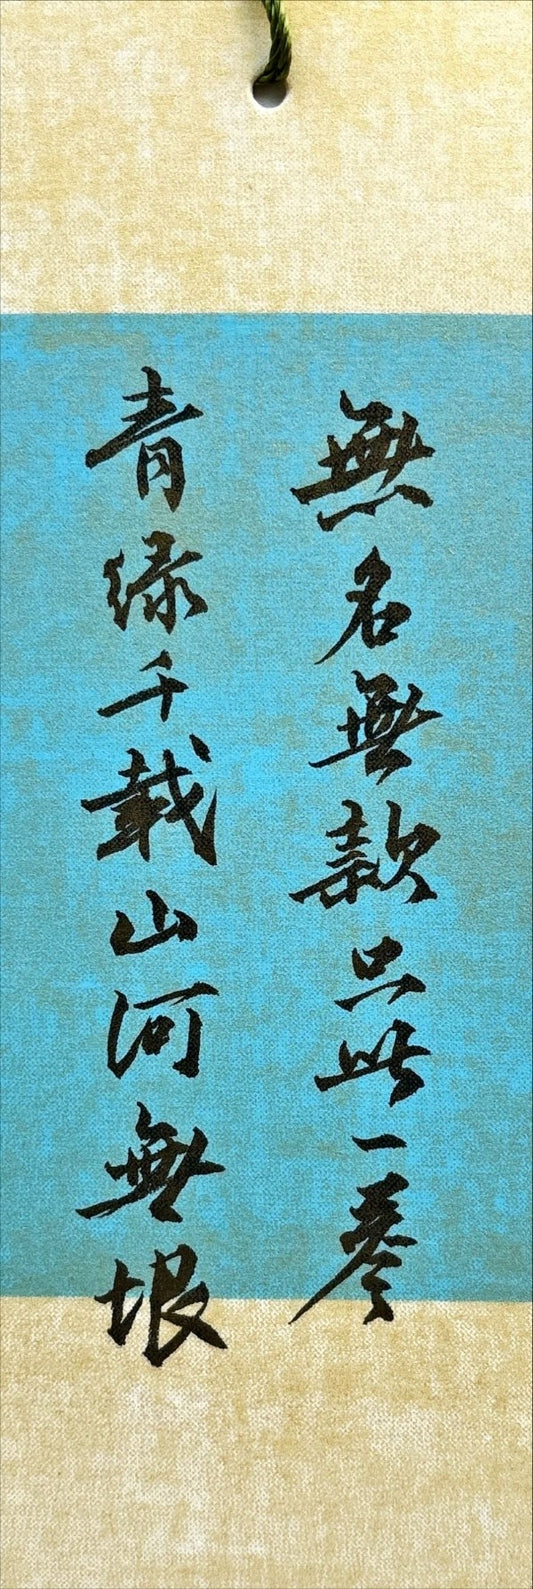 無名無款只此一卷
青绿千载山河無垠